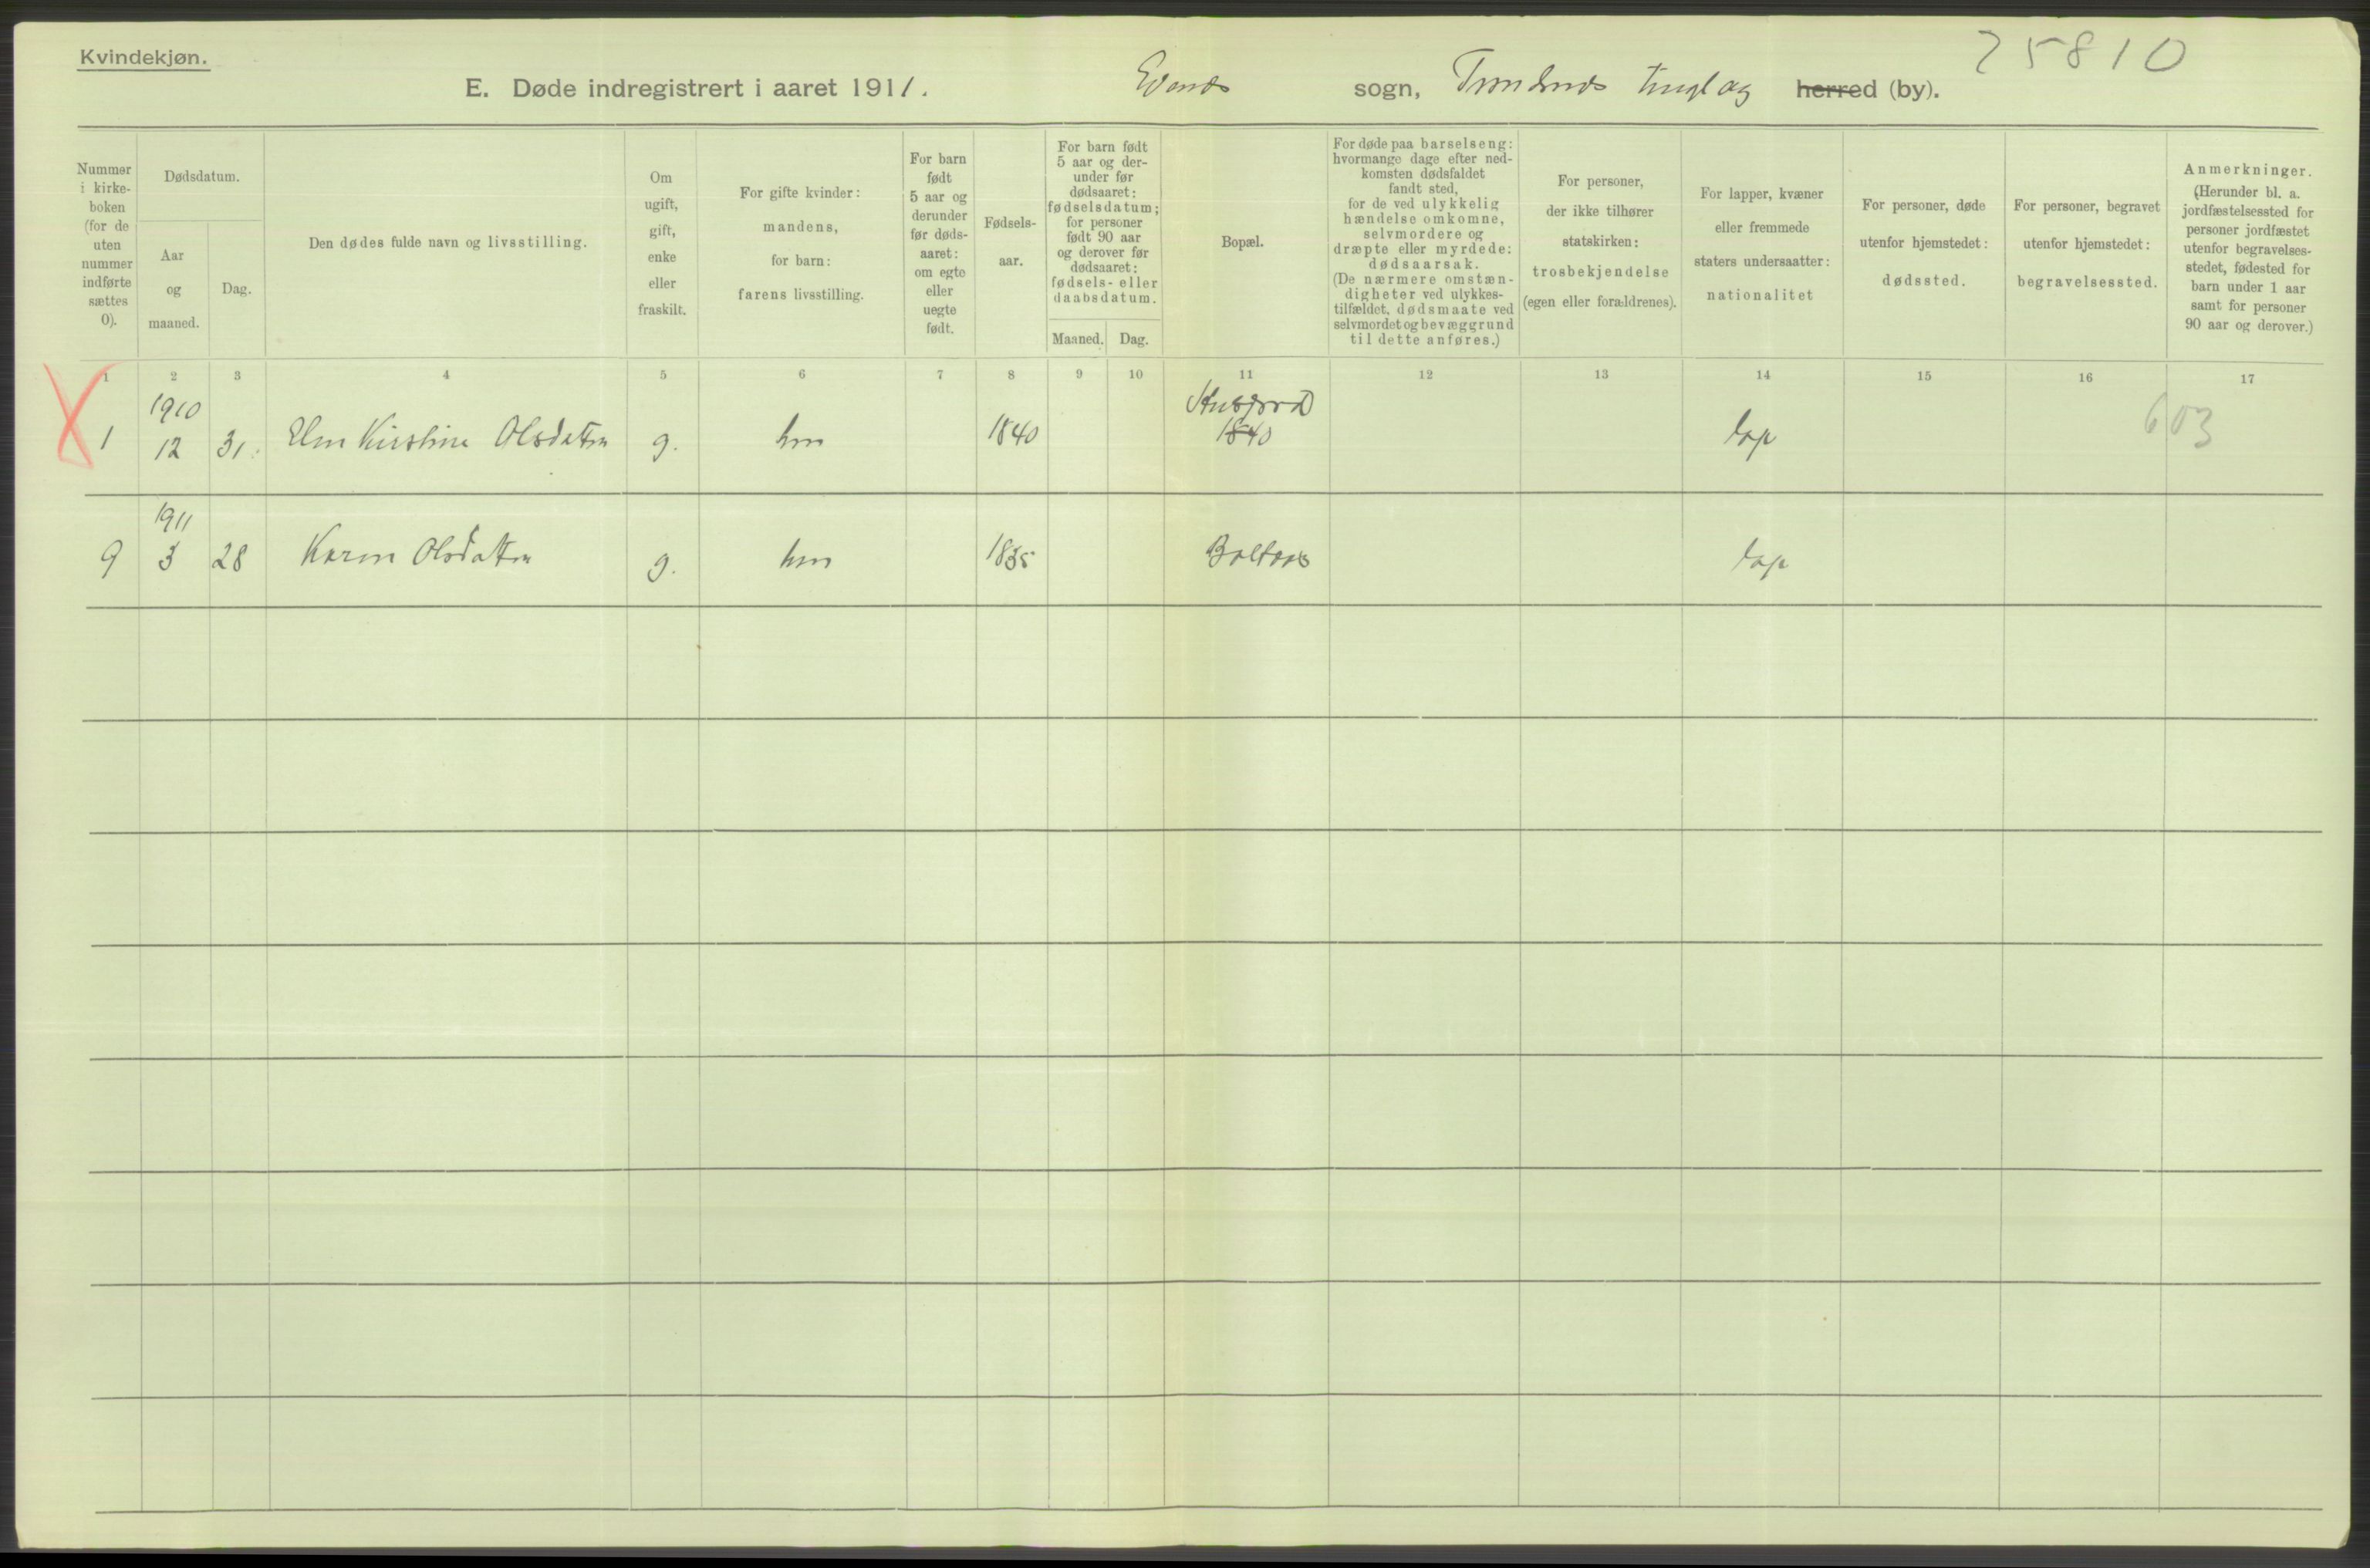 Kvindekjøn.
25810
E. Døde indregistrert i aaret 1911. Evenes sogn, Trondenes tinglag herred (by).
Nummer i kirkeboken (for de uten nummer indførte sættes 0).
Dødsdatum.
Aar og maaned.
Dag.
Den dødes fulde navn og livsstilling.
Om ugift, gift, enke eller fraskilt.
For gifte kvinder: mandens, for barn: farens livsstilling.
For barn født 5 aar og derunder før dødsaaret: om egte eller uegte født.
Fødselsaar.
For barn født 5 aar og derunder før dødsaaret: fødselsdatum; for personer født 90 aar og derover før dødsaaret: fødsels- eller daabsdatum.
Maaned. Dag.
Bopæl.
For døde paa barselseng: hvormange dage efter nedkomsten dødsfaldet fandt sted, for de ved ulykkelig hændelse omkomne, selvmordere og dræpte eller myrdede: dødsaarsak. (De nærmere omstændigheter ved ulykkestilfældet, dødsmaate ved selvmordet og bevæggrund til dette anføres.)
For personer, der ikke tilhører statskirken: trosbekjendelse (egen eller forældrenes).
For lapper, kvæner eller fremmede staters undersaatter: nationalitet
For personer, døde utenfor hjemstedet: dødssted.
For personer, begravet utenfor hjemstedet: begravelsessted.
Anmerkninger. (Herunder bl. a. jordfæstelsessted for personer jordfæstet utenfor begravelsesstedet, fødested for barn under 1 aar samt for personer 90 aar og derover.)
1 2 3 4 5 6 7 8 9 10 11 12 13 14 15 16 17
1910
1 12 31. Elen Kirstine Olsdatter g. hm 1840 1840 lap 603
1911
9 3 28 Karen Olsdatter g. hm 1835 Boltaas lap